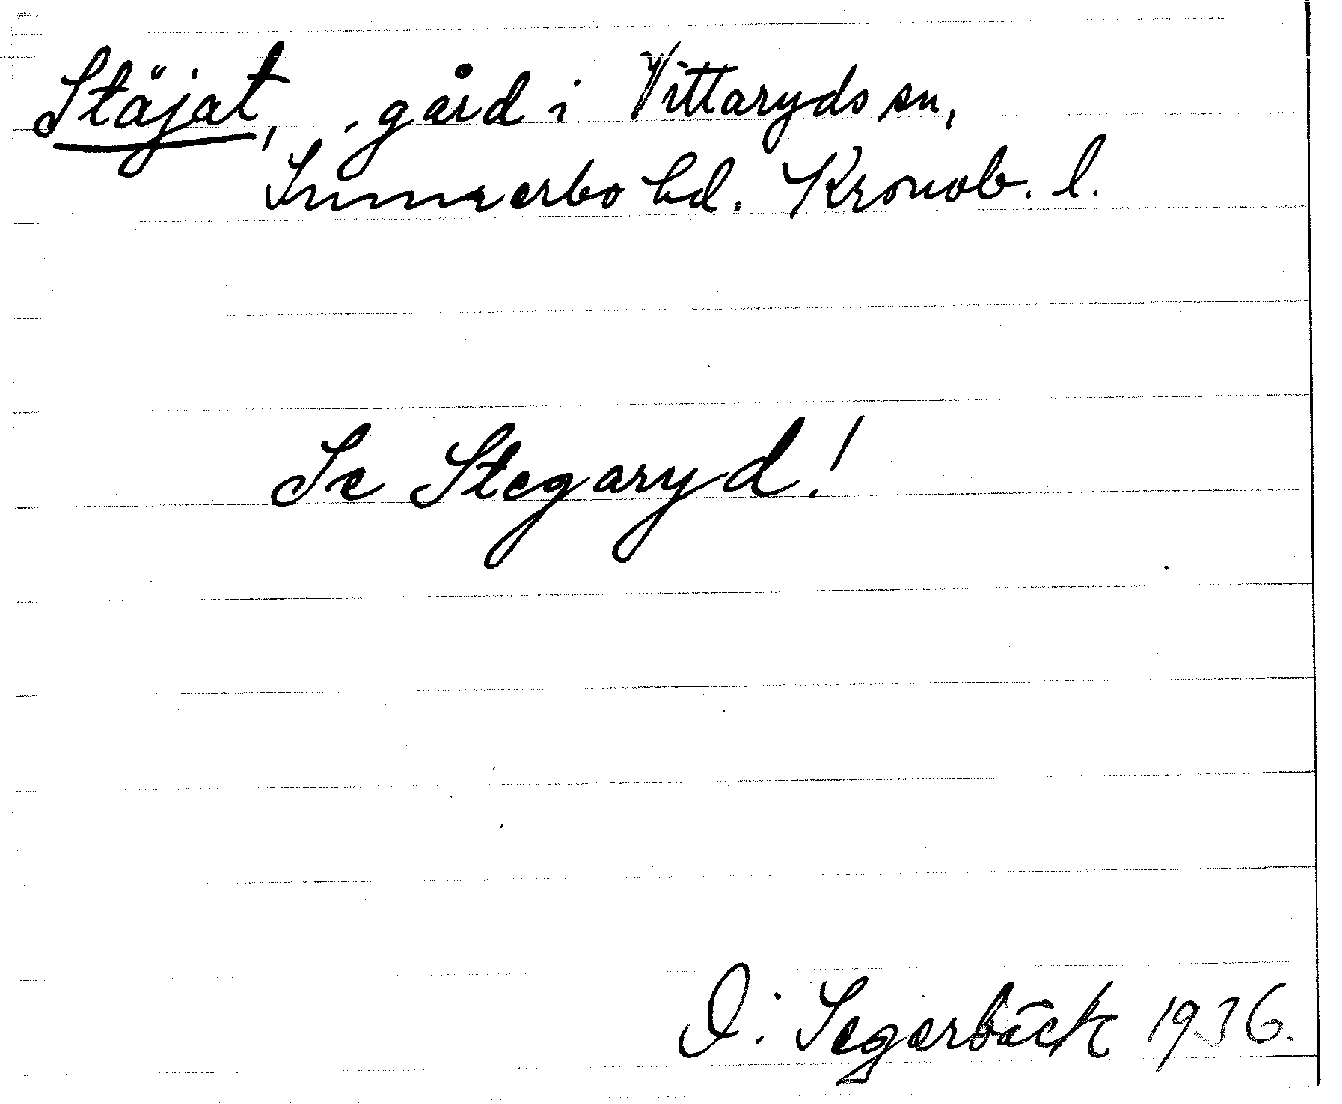 Stäjat, gård i Vittaryds sn,
Sunnerbo hd. Kronob. l.
Se Stegaryd!
O: Segerbäck 1936.